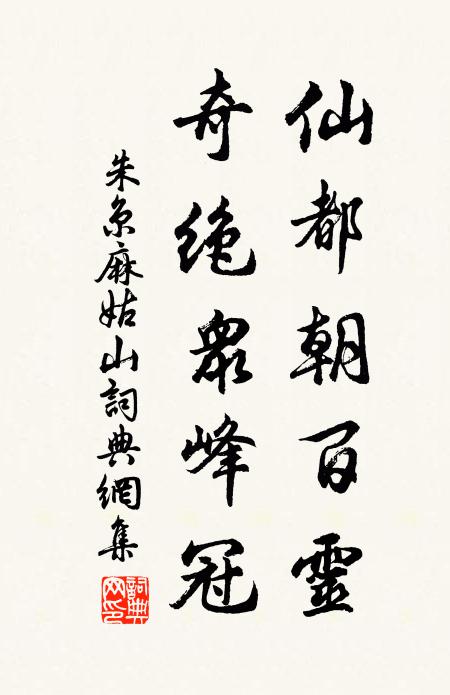 仙都朝百靈
奇絕衆峰冠
朱京麻姑山詞典網集
詞典網印